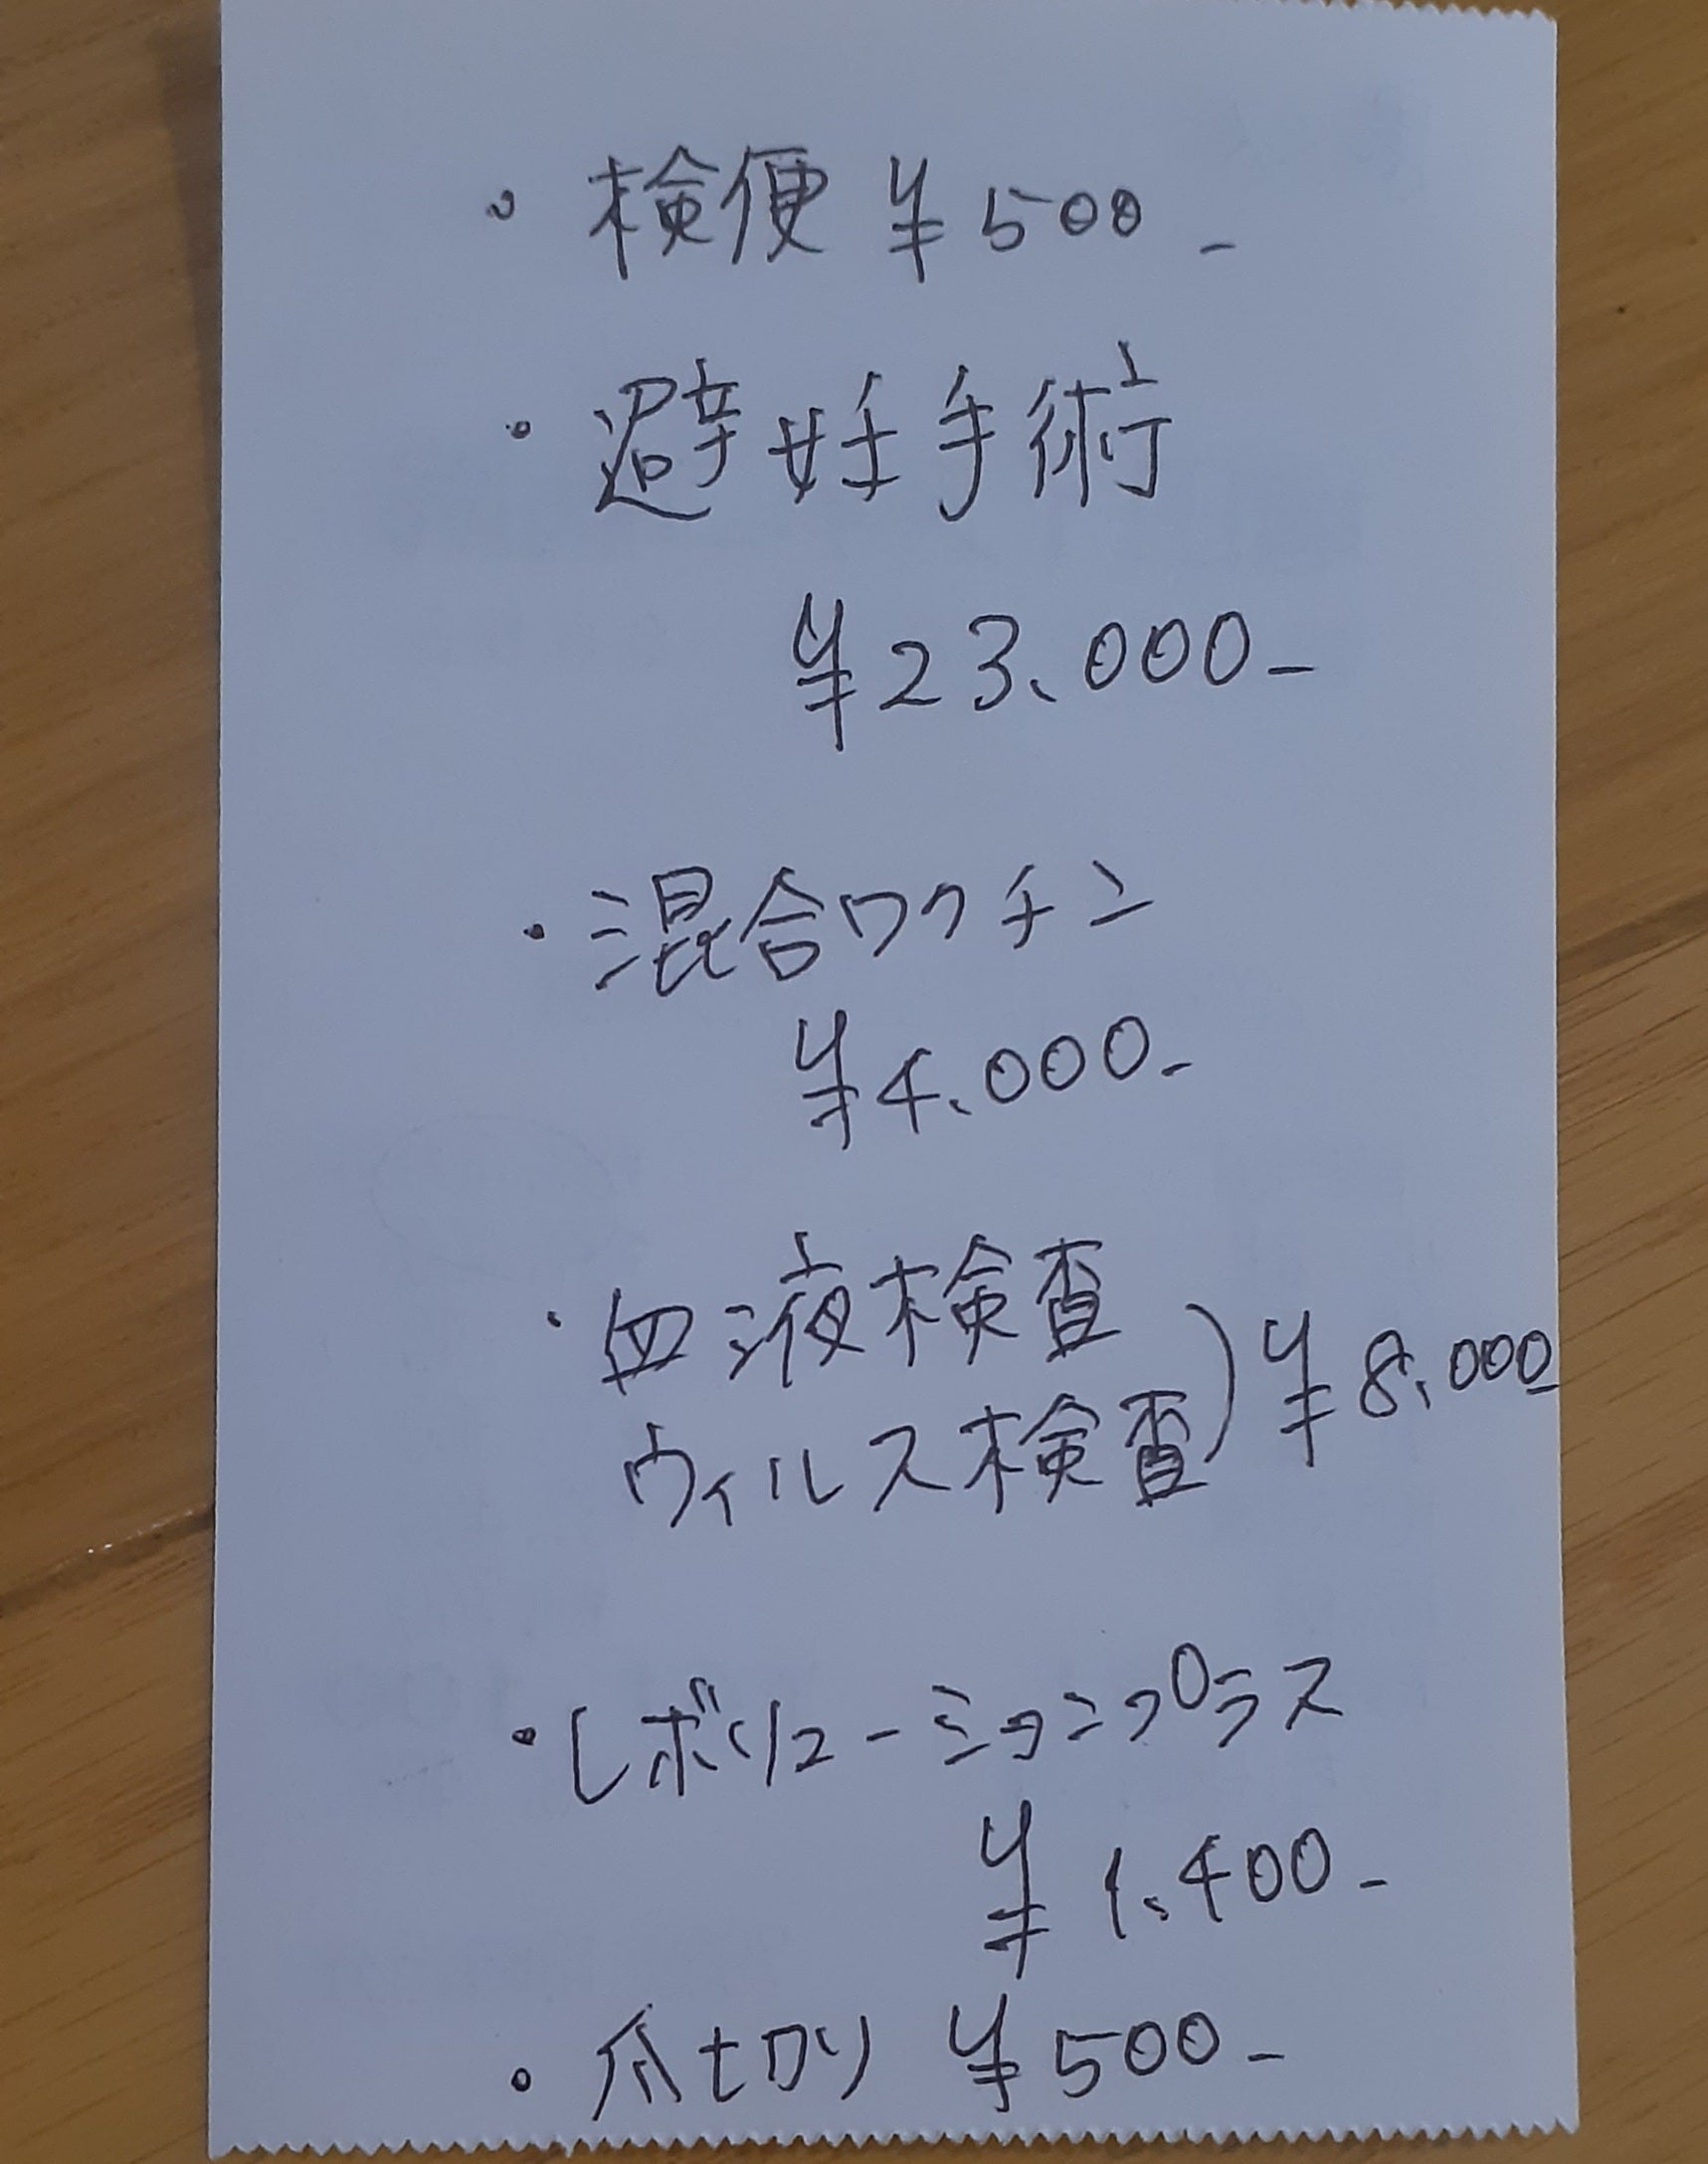 ・検便 ¥500-
・避妊手術
¥23,000-
・混合ワクチン
¥4,000-
・血液検査
ウィルス検査)¥8,000
・レボリューションプラス
¥1,400-
・爪切り ¥500-